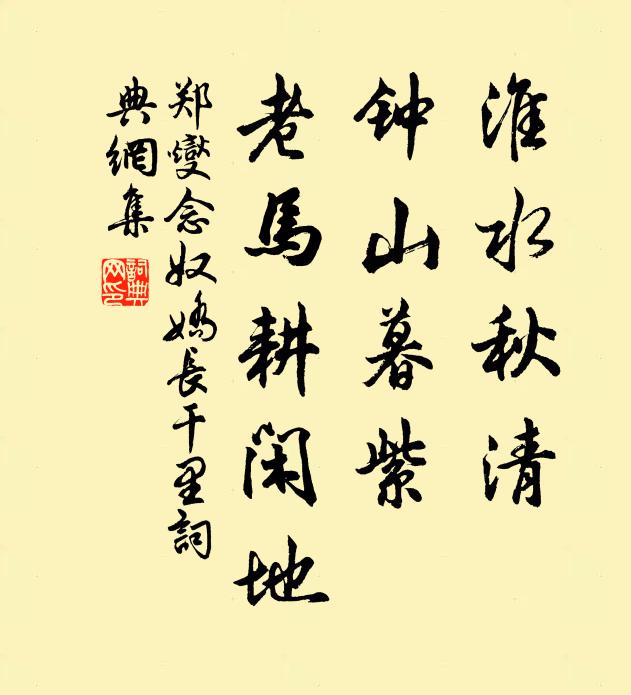 淮水秋清
钟山暮紫
老馬耕闲地
郑燮念奴嬌長干里詞
典網集
詞典
网印